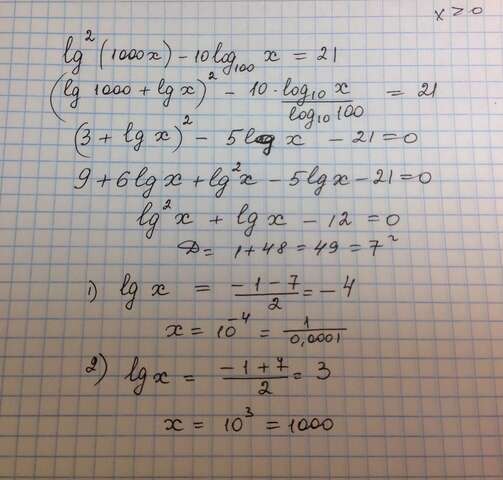 x > 0
lg²(1000x) - 10 log₁₀₀ x = 21
(lg 1000 + lg x)² - 10 · log₁₀ x / log₁₀ 100 = 21
(3 + lg x)² - 5 lg x - 21 = 0
9 + 6 lg x + lg² x - 5 lg x - 21 = 0
lg² x + lg x - 12 = 0
D = 1 + 48 = 49 = 7²
1) lg x = (-1 - 7) / 2 = -4
x = 10⁻⁴ = 1 / 0,0001
2) lg x = (-1 + 7) / 2 = 3
x = 10³ = 1000